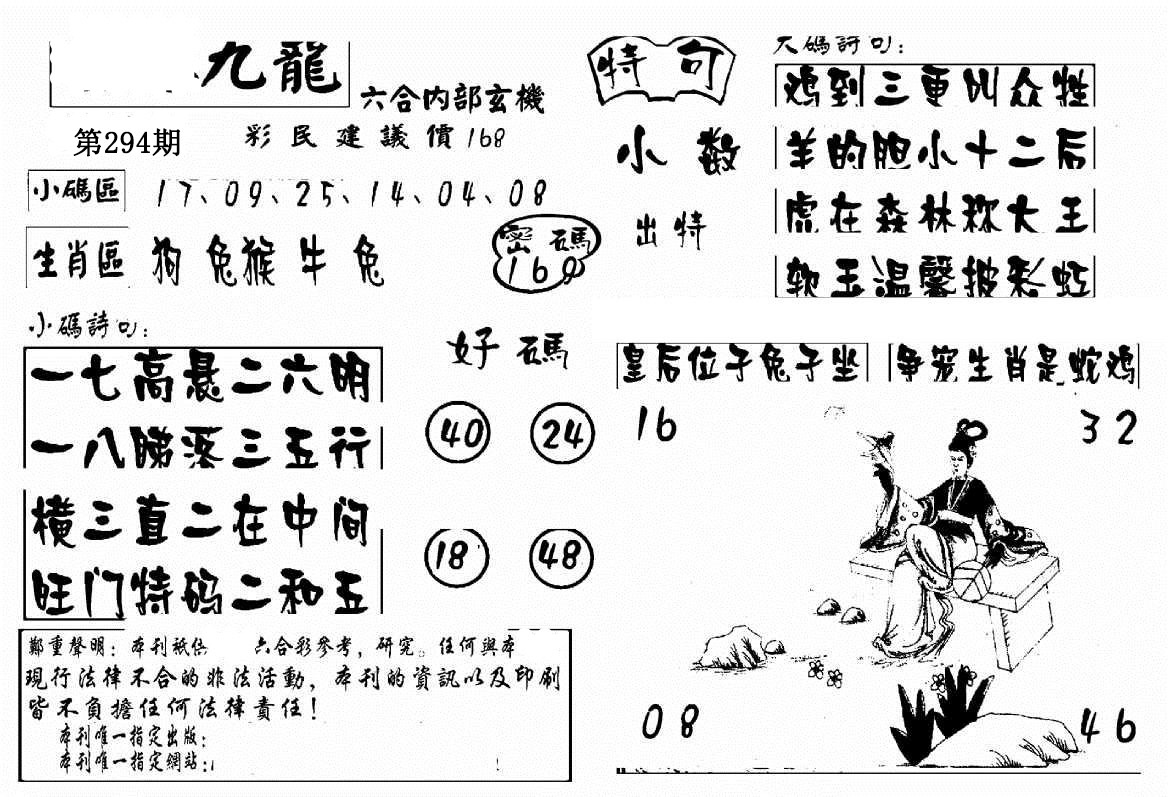 九龍
六合内部玄機
第294期
彩民建議價168
小碼區
17、09、25、14、04、08
生肖區
狗 兔猴 牛 兔
密碼
169
小碼詩句：
一七高悬二六明
一八睇落三五行
横三直二在中间
旺门特码二和五
好碼
40
24
18
48
鄭重聲明：本刊衹供 六合彩參考，研究。任何與本
現行法律不合的非法活動，本刊的資訊以及印刷
皆不負擔任何法律責任！
本刊唯一指定出版：
本刊唯一指定網站：
特句
小数
出特
大碼詩句：
鸡到三更叫众牲
羊的胆小十二后
虎在森林称大王
软玉温馨披彩虹
皇后位子兔子坐
争宠生肖是蛇鸡
16
32
08
46